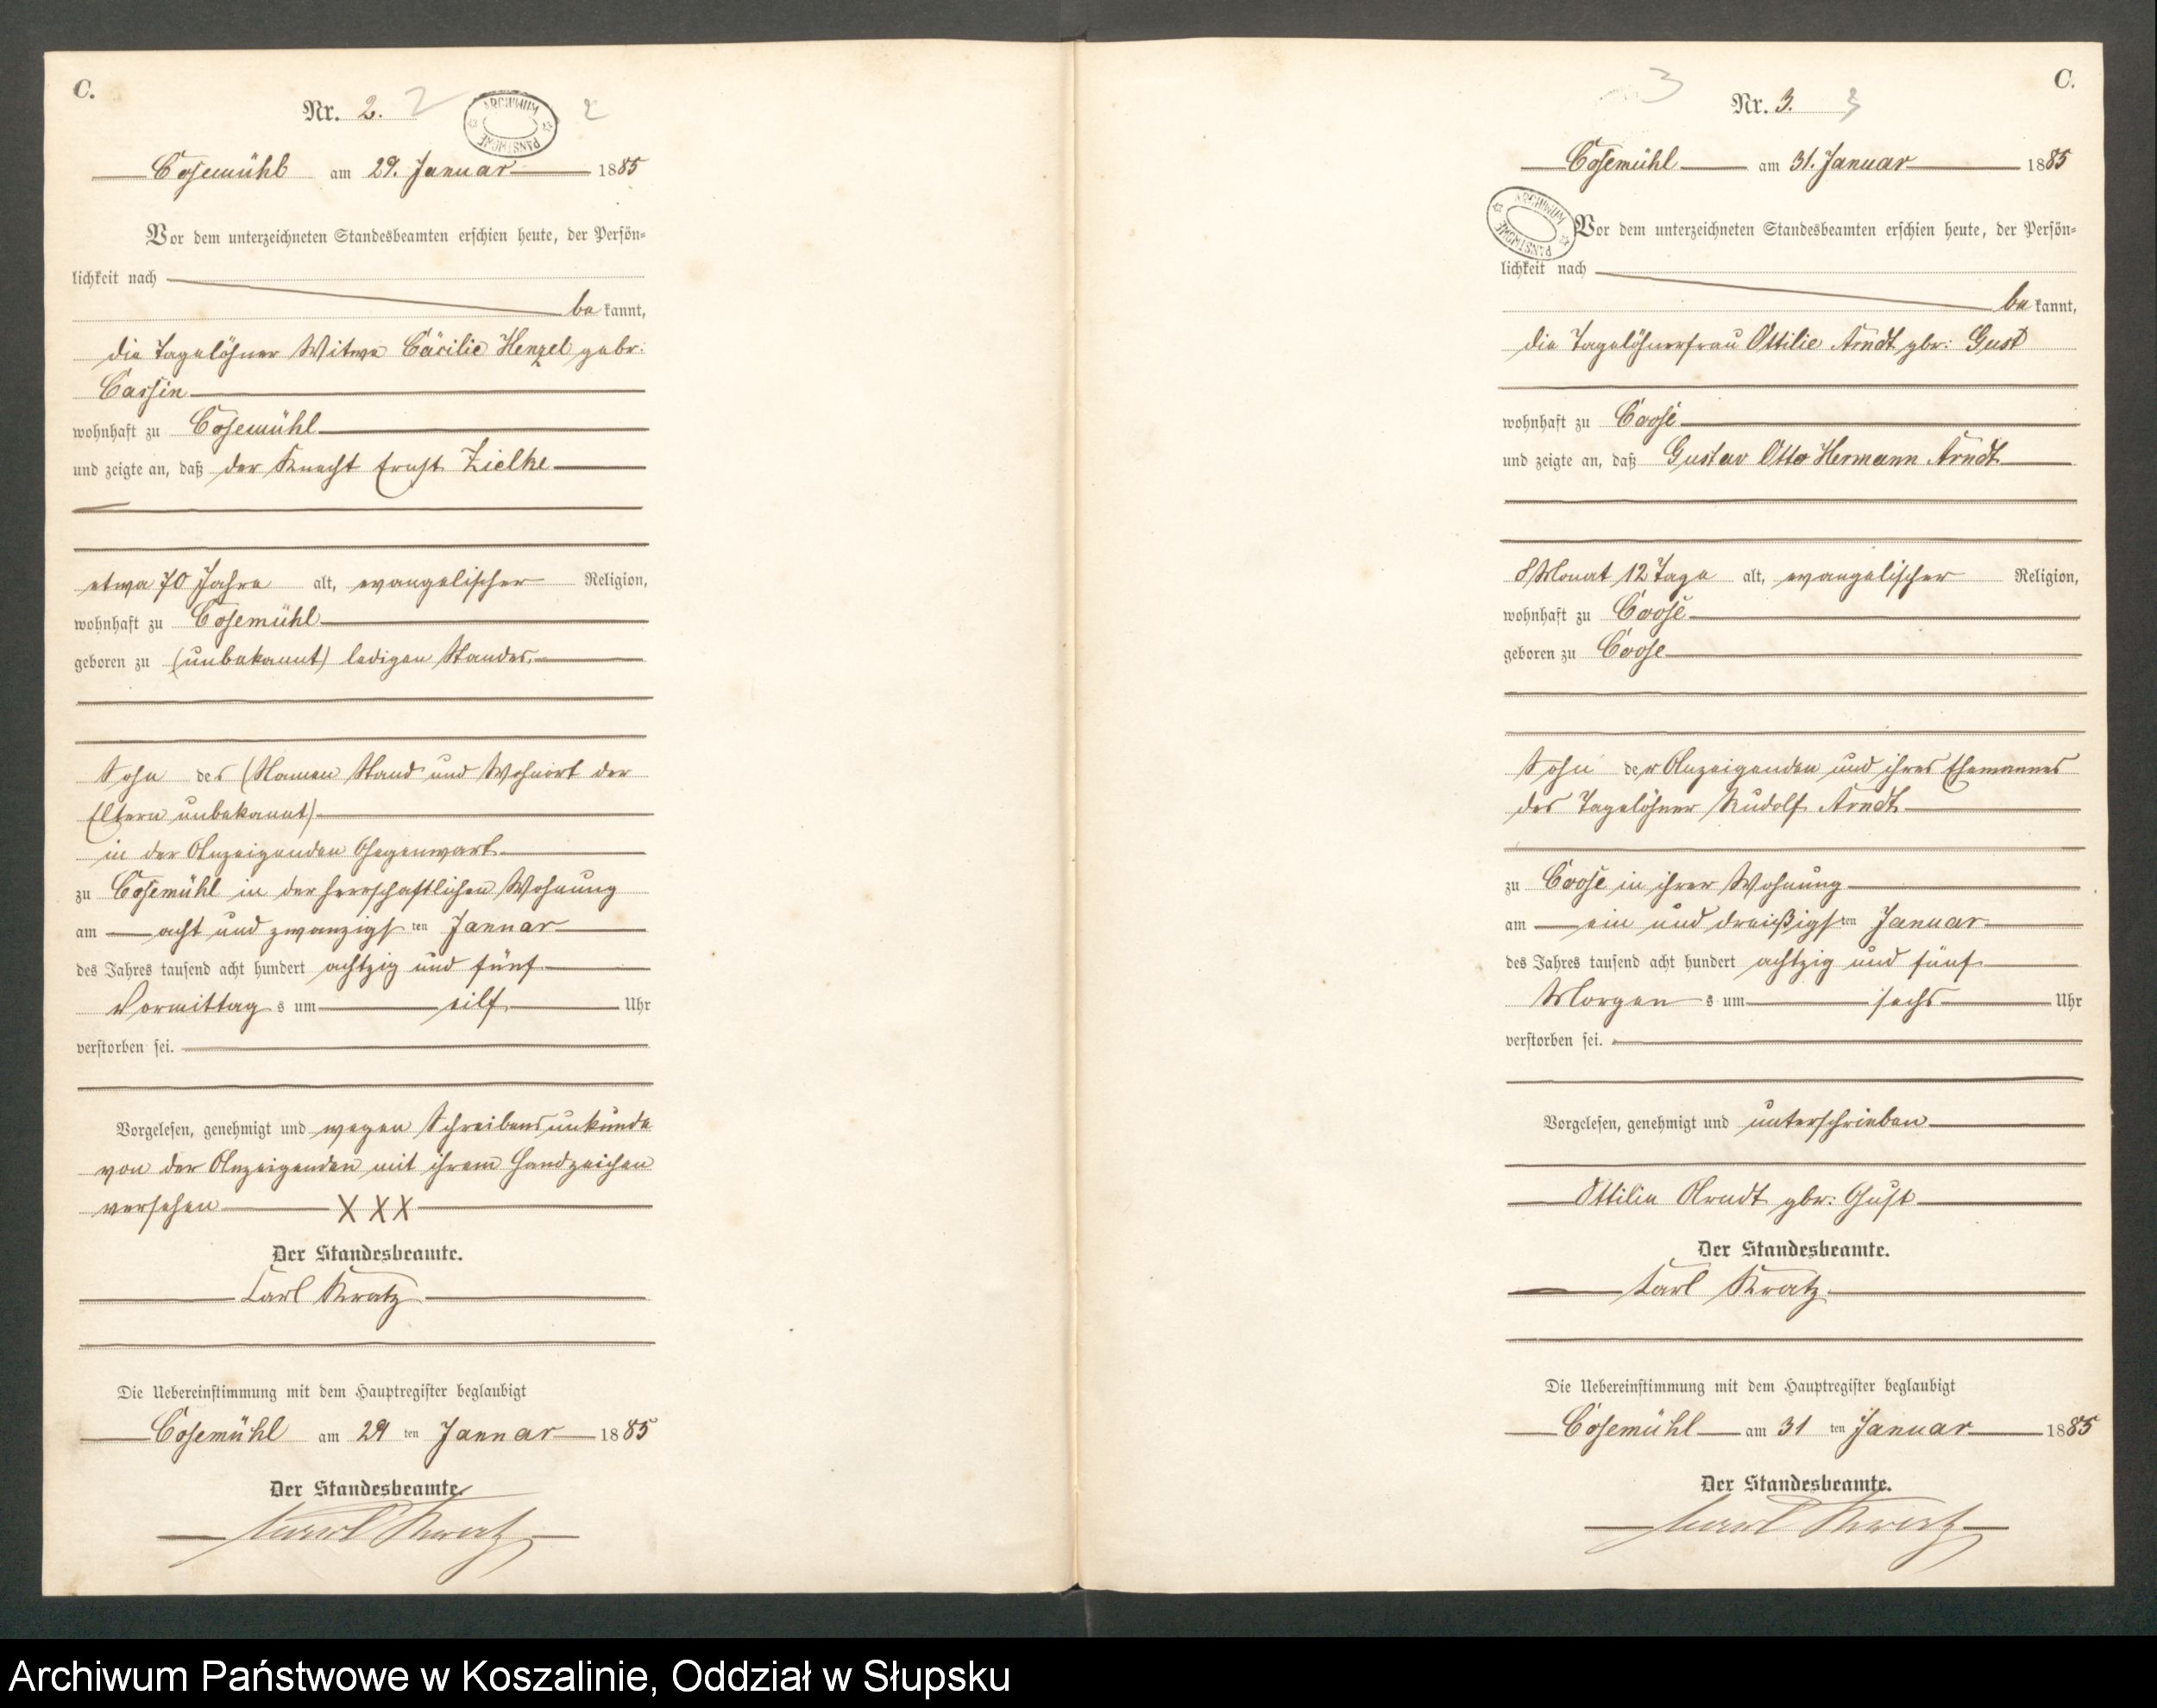 C.
Nr. 2. 2
ARCHIWUM PAŃSTWOWE
2
Cosemühl am 29. Januar 1885
Vor dem unterzeichneten Standesbeamten erschien heute, der Persön-
lichkeit nach
be kannt,
die Tagelöhner Witwe Cäcilie Henzel gebr:
Cassin
wohnhaft zu Cosemühl
und zeigte an, daß der Knecht Ernst Zielke
etwa 70 Jahre alt, evangelischer Religion,
wohnhaft zu Cosemühl
geboren zu (unbekannt) ledigen Standes,
Sohn des (Namen Stand und Wohnort der
Eltern unbekannt)
in der Anzeigenden Gegenwart
zu Cosemühl in der herrschaftlichen Wohnung
am acht und zwanzigs ten Januar
des Jahres tausend acht hundert achtzig und fünf
Vormittag s um eilf Uhr
verstorben sei.
Vorgelesen, genehmigt und wegen Schreibensunkunde
von der Anzeigenden mit ihrem Handzeichen
versehen X X X
Der Standesbeamte.
Carl Kratz
Die Uebereinstimmung mit dem Hauptregister beglaubigt
Cosemühl am 29 ten Januar 1885
Der Standesbeamte.
Carl Kratz
C.
3
Nr. 3. 3
Cosemühl am 31. Januar 1885
ARCHIWUM PAŃSTWOWE
Vor dem unterzeichneten Standesbeamten erschien heute, der Persön-
lichkeit nach
be kannt,
die Tagelöhnerfrau Ottilie Arndt gbr: Gust
wohnhaft zu Coose
und zeigte an, daß Gustav Otto Hermann Arndt
8 Monat 12 Tage alt, evangelischer Religion,
wohnhaft zu Coose
geboren zu Coose
Sohn der Anzeigenden und ihres Ehemannes
des Tagelöhner Rudolf Arndt
zu Coose in ihrer Wohnung
am ein und dreißigs ten Januar
des Jahres tausend acht hundert achtzig und fünf
Morgen s um sechs Uhr
verstorben sei.
Vorgelesen, genehmigt und unterschrieben
Ottilie Arndt gbr: Gust
Der Standesbeamte.
Karl Kratz
Die Uebereinstimmung mit dem Hauptregister beglaubigt
Cosemühl am 31 ten Januar 1885
Der Standesbeamte.
Carl Kratz
Archiwum Państwowe w Koszalinie, Oddział w Słupsku